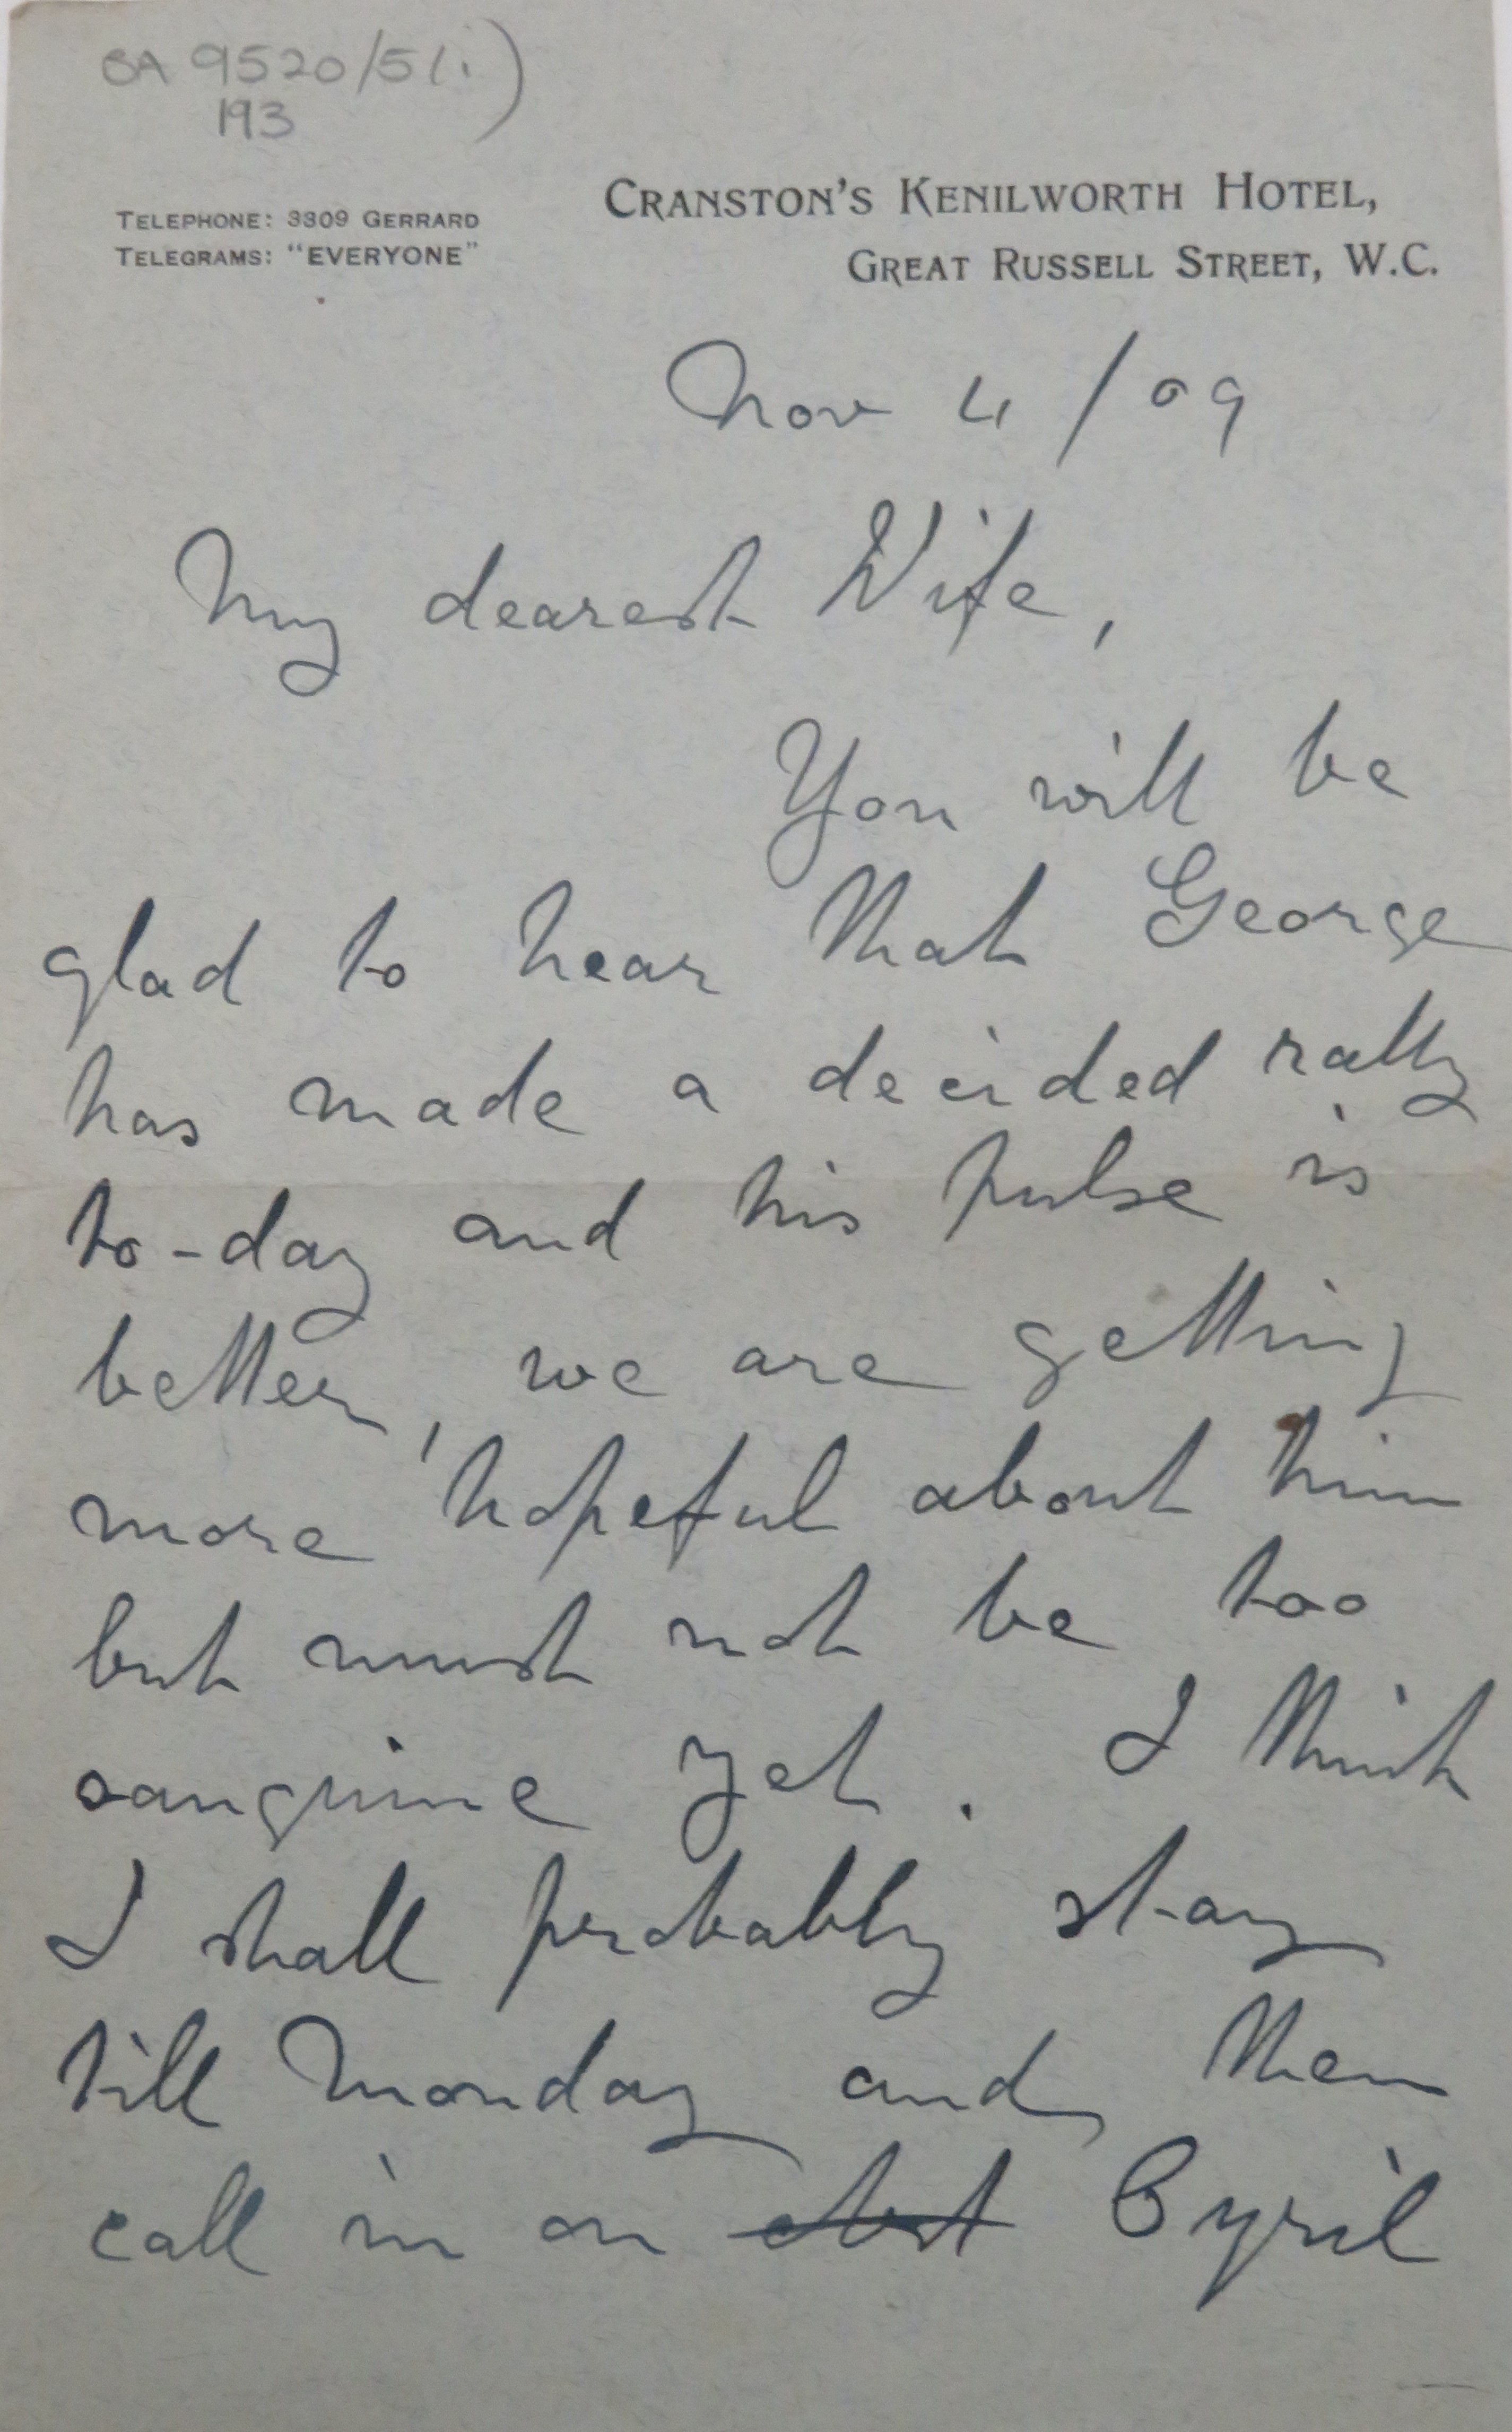 SA 9520/5(i)
193
TELEPHONE: 3309 GERRARD
TELEGRAMS: "EVERYONE"
CRANSTON'S KENILWORTH HOTEL,
GREAT RUSSELL STREET, W.C.
Nov 4/09
My dearest Wife,
You will be
glad to hear that George
has made a decided rally
to-day and his pulse is
better, we are getting
more hopeful about him
but must not be too
sanguine yet. I think
I shall probably stay
till Monday and then
call in on Cyril